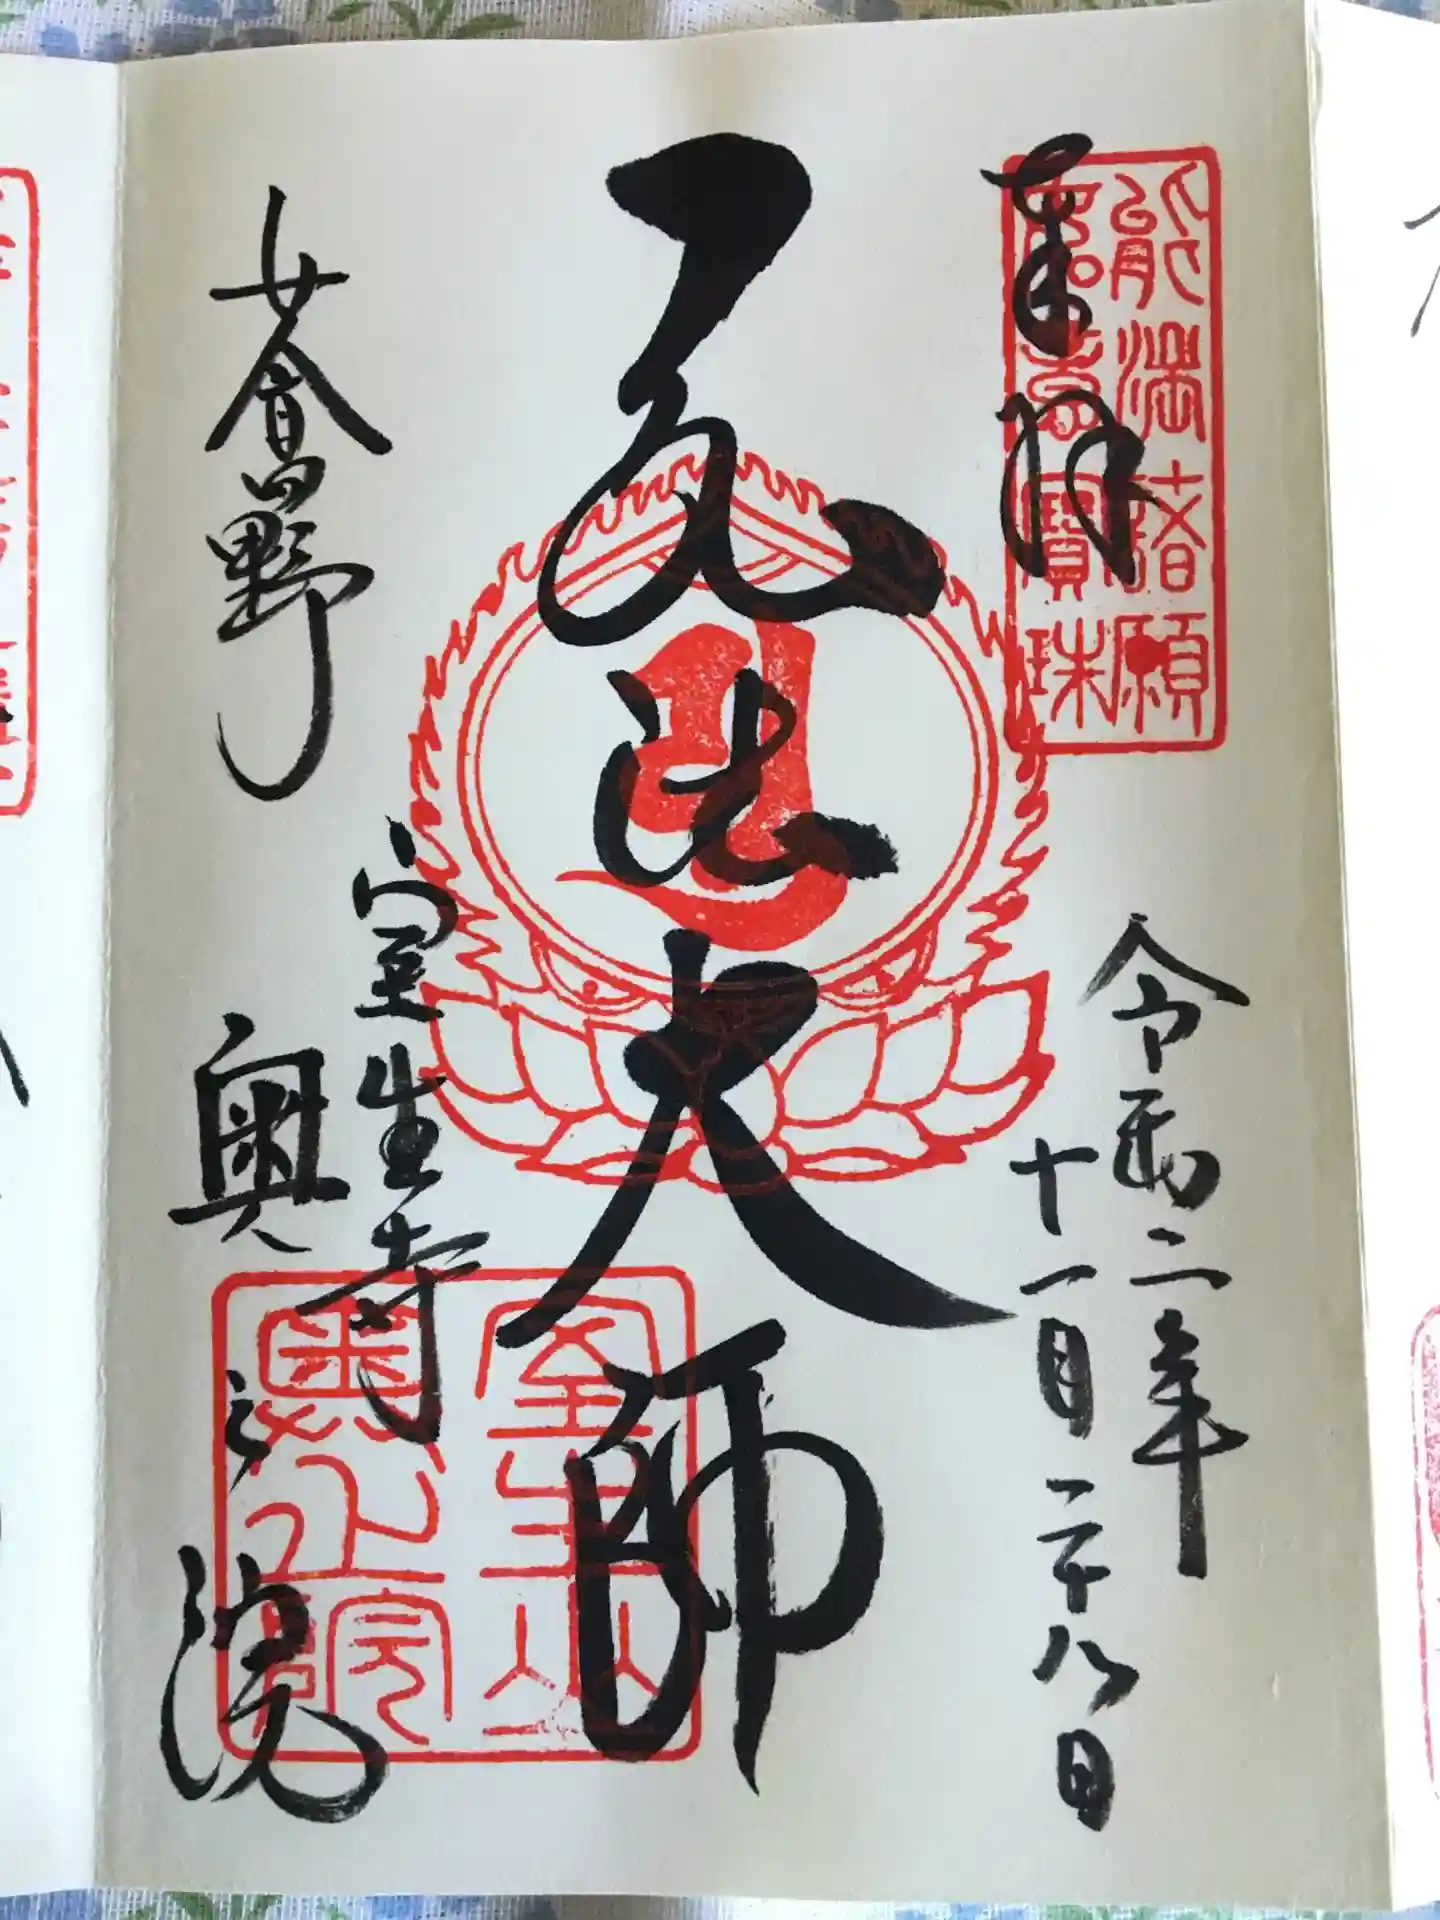 奉拝
能満諸願
如意寶珠
令和二年
十一月二十八日
弘法大師
女人高野
室生寺
奥之院
室生山
奥之院